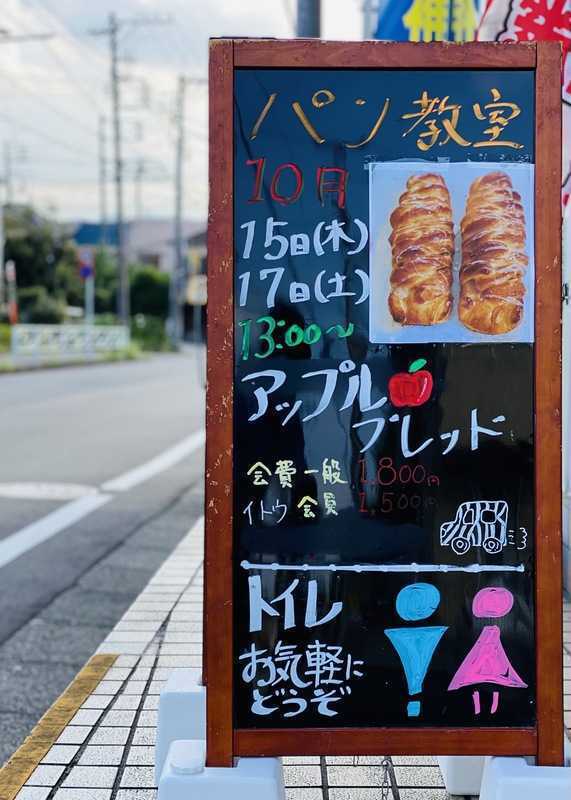 パン教室
10月
15日(木)
17日(土)
13:00〜
アップル
ブレッド
会費 一般 1,800円
イトウ 会員 1,500円
トイレ
お気軽に
どうぞ